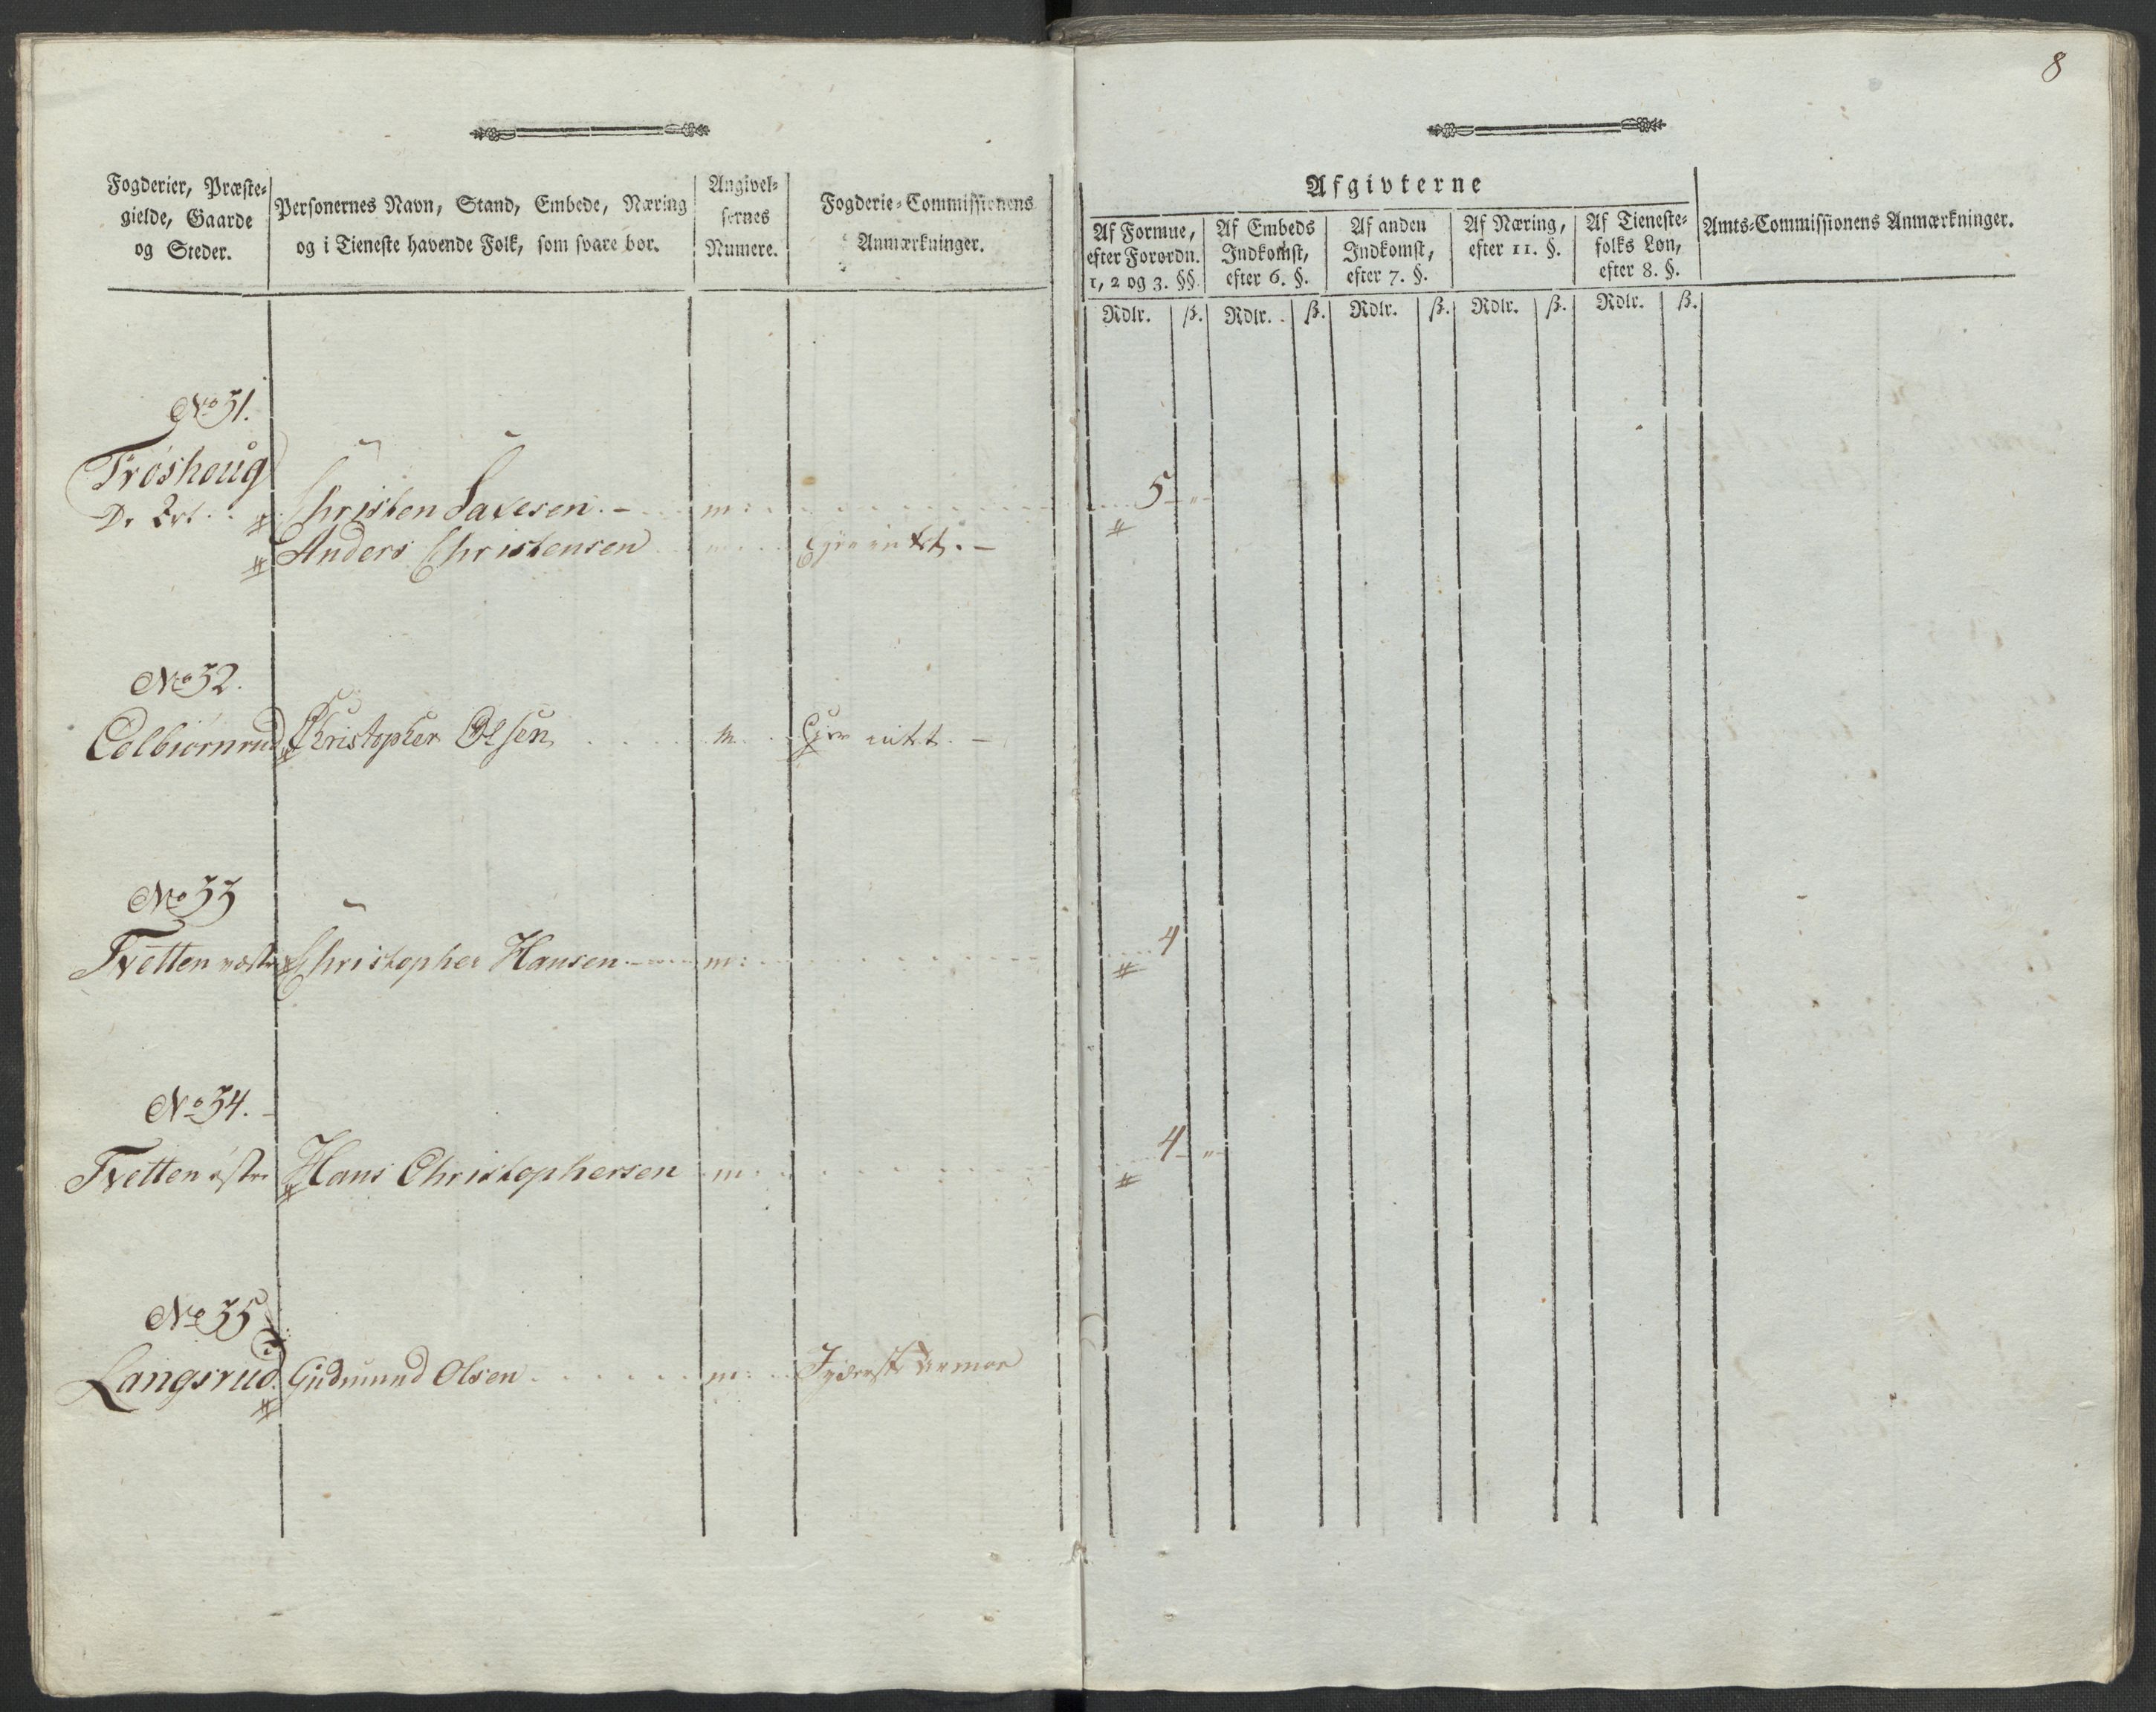 8
Fogderier, Præste-
gielde, Gaarde
og Steder.
Personernes Navn, Stand, Embede, Næring
og i Tieneste havende Folk, som svare bør.
Angivel-
sernes
Numere.
Fogderie-Commissionens
Anmærkninger.
Afgivterne
Af Formue,
efter Forordn.
1, 2 og 3. §§.
Af Embeds
Indkomst,
efter 6. §.
Af anden
Indkomst,
efter 7. §.
Af Næring,
efter 11. §.
Af Tieneste-
folks Løn,
efter 8. §.
Amts-Commissionens Anmærkninger.
Rdlr. ß. Rdlr. ß. Rdlr. ß. Rdlr. ß. Rdlr. ß.
No 31.
Trøshoug
Christen Saxesen. - m: 5 - " -
Anders Christensen
No 32.
Colbiørnrud Christopher Olsen m.
No 33
Tvetten vestre Christopher Hansen m: 4
No 34.
Tvetten østre Hans Christophersen m. 4 - "
No 35
Langsrud. Gudmund Olsen m: